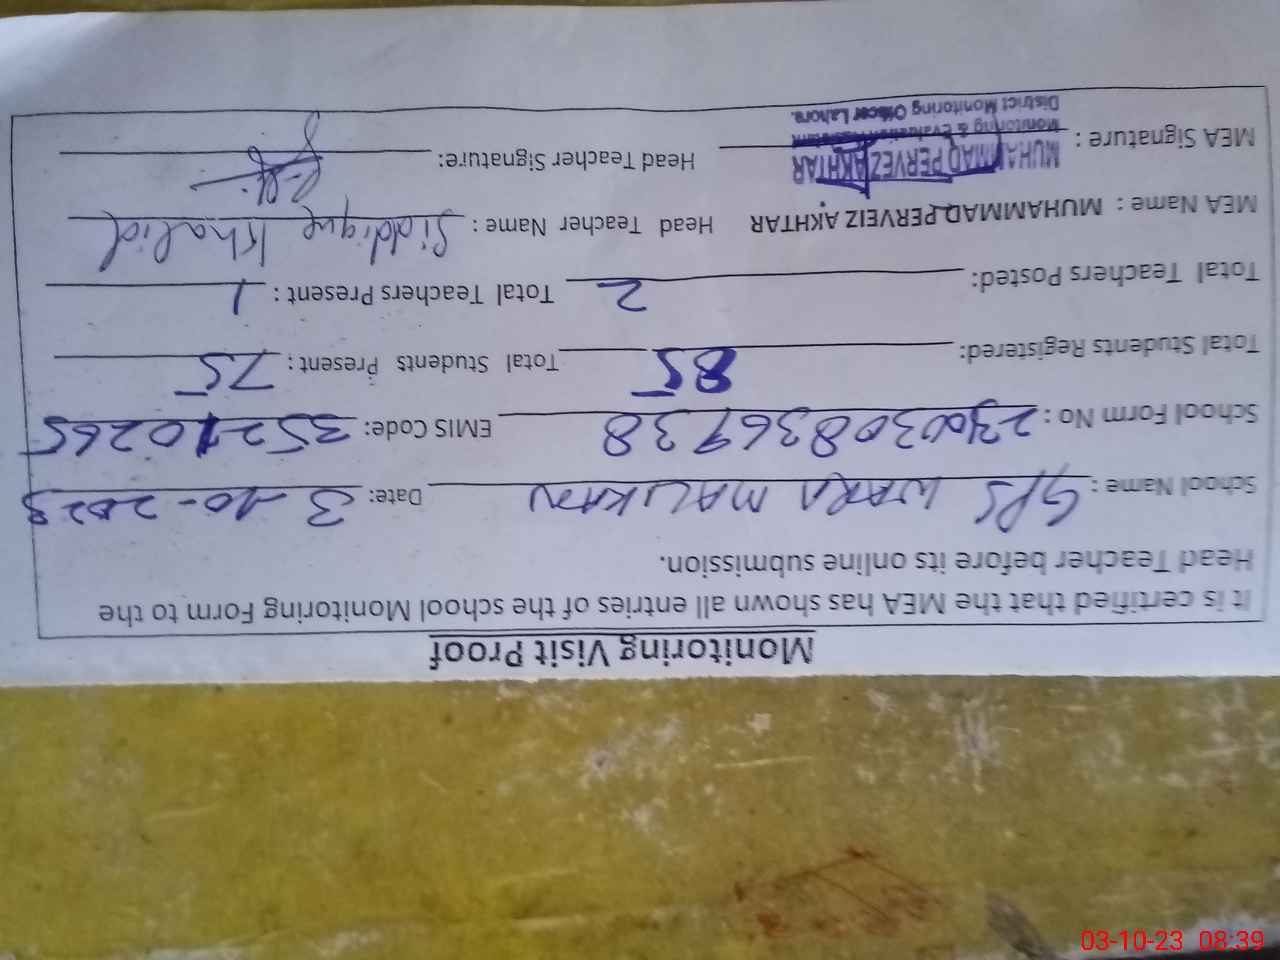 Monitoring Visit Proof
It is certified that the MEA has shown all entries of the school Monitoring Form to the
Head Teacher before its online submission.
School Name : GPS WARA MALIKAN Date: 3-10-2023
School Form No : 230030836938 EMIS Code: 35210265
Total Students Registered: 85 Total Students Present : 75
Total Teachers Posted: 2 Total Teachers Present : 1
MEA Name : MUHAMMAD PERVEIZ AKHTAR Head Teacher Name : Siddique Khalid
MEA Signature : MUHAMMAD PERVEZ AKHTAR Head Teacher Signature:
Monitoring & Evaluation Assistant
District Monitoring Officer Lahore.
03-10-23 08:39